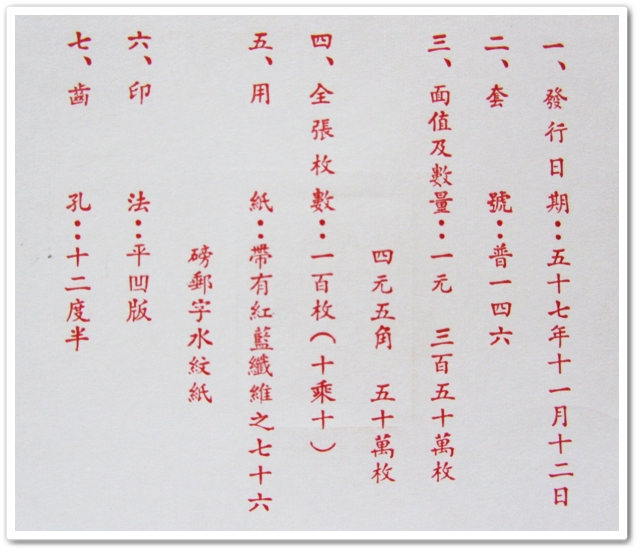 一、發行日期：五十七年十一月十二日
二、套號：普一四六
三、面值及數量：一元 三百五十萬枚
四元五角 五十萬枚
四、全張枚數：一百枚（十乘十）
五、用紙：帶有紅藍纖維之七十六
磅郵字水紋紙
六、印法：平凹版
七、齒孔：十二度半